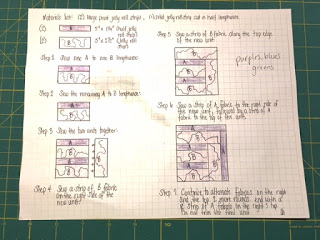 Materials list: (2) large print jelly roll strips, (1) solid jelly roll strip cut in half lengthwise.
(2) A
(2) B
Step 1 Sew one A to one B lengthwise.
A
B
Step 2 Sew the remaining A to B lengthwise.
A
B
Step 3 Sew the two units together:
A
B
A
B
Step 4 Sew a strip of B fabric
on the right side of the
new unit.
Step 5 Sew a strip of B fabric along the top edge
of the new unit.
A
B
A
B
Step 6 Sew a strip of A fabric to the right side of the
new unit, followed by a strip of A
fabric to the top of the unit.
A
B
A
B
Step 7 Continue to alternate fabrics on the right
and the top 2 more rounds. End with a
strip of A fabric on the right & top.
purples, blues
greens